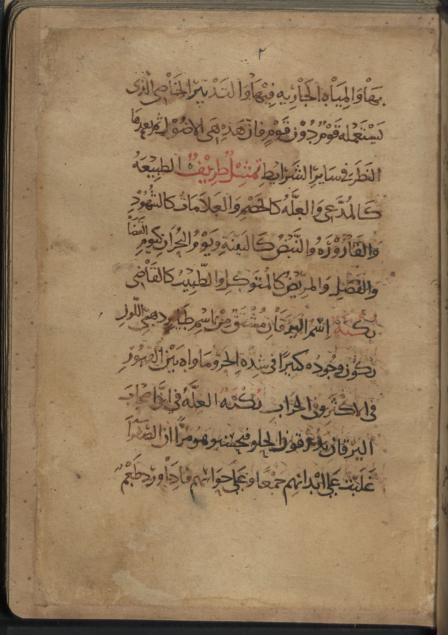 ٢
بها والمياه الجارية فيها والتدبير الخاصي الذي
يستعمله قوم دون قوم فان هذه هي الاصول ثم بعدها
النظر في ساير الشرايط تمثيل طريف الطبيعة
كالمدعي والعلة كالخصم والعلامات كالشهود
والقارورة والنبض كالبينة ويوم البحران كيوم القضا
والفصل والمريض كالمتوكل والطبيب كالقاضي
نكتة اسم اليرقان مشتق من اسم طاير ذهبي اللون
يكون وجوده كثيرا في شدة الحر وماواه بين
في الاكثر وفي الخراب نكتة العلة في ان اصحاب
اليرقان الحلو فيحسونه مرا ان الصفرا
غلبت على ابدانهم جمعا وعلى حواسهم فاذا ورد طعم